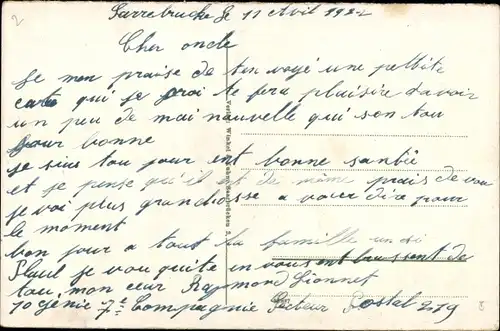 Sarrebrucke le 11 Avil 1922
Cher oncle
Je mon praise de ten voyé une pettite
carte qui je croi te fera plaisire davoir
un peu de mai nouvelle qui son tou
jour bonne
je suis tou jour ent bonne santée
et je pense qu'il et di même prais de vou
je voi plus grandchosse a vouer dire pour
le moment
bon jour a tout la famille un si
Paul je vou quite en vous embrassent de
tou mon ceur Raymond Lionnet
70 Génie 7e Compagnie Secteur Postal 279
Verlag Winkel Saarbrücken 2,